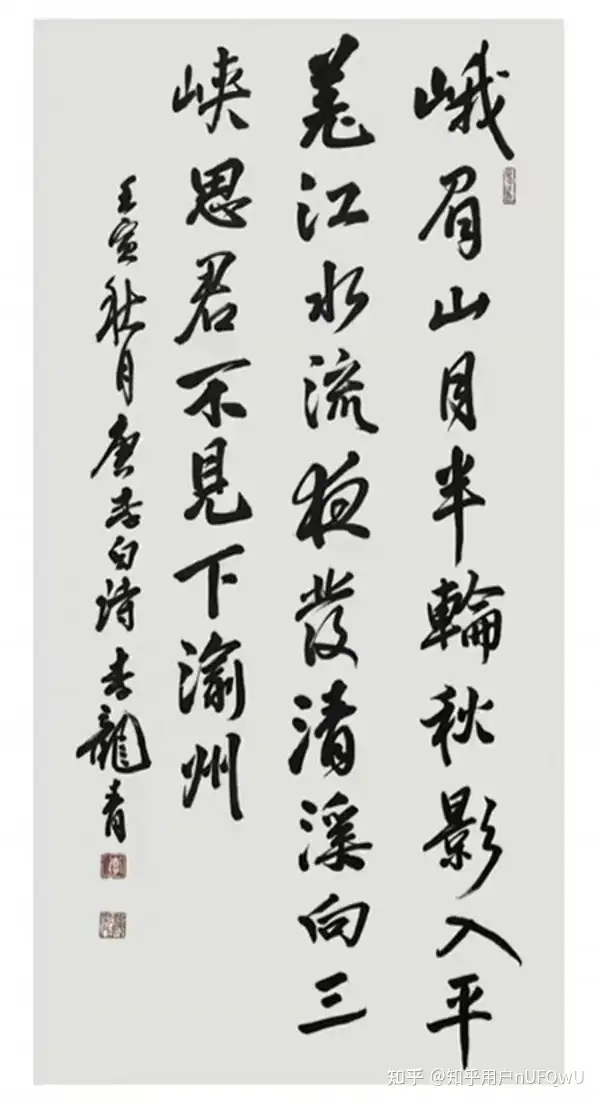 峨眉山月半輪秋影入平
羌江水流夜發清溪向三
峽思君不見下渝州
壬寅秋月唐李白诗李龍青
知乎 @知乎用户nUFQwU